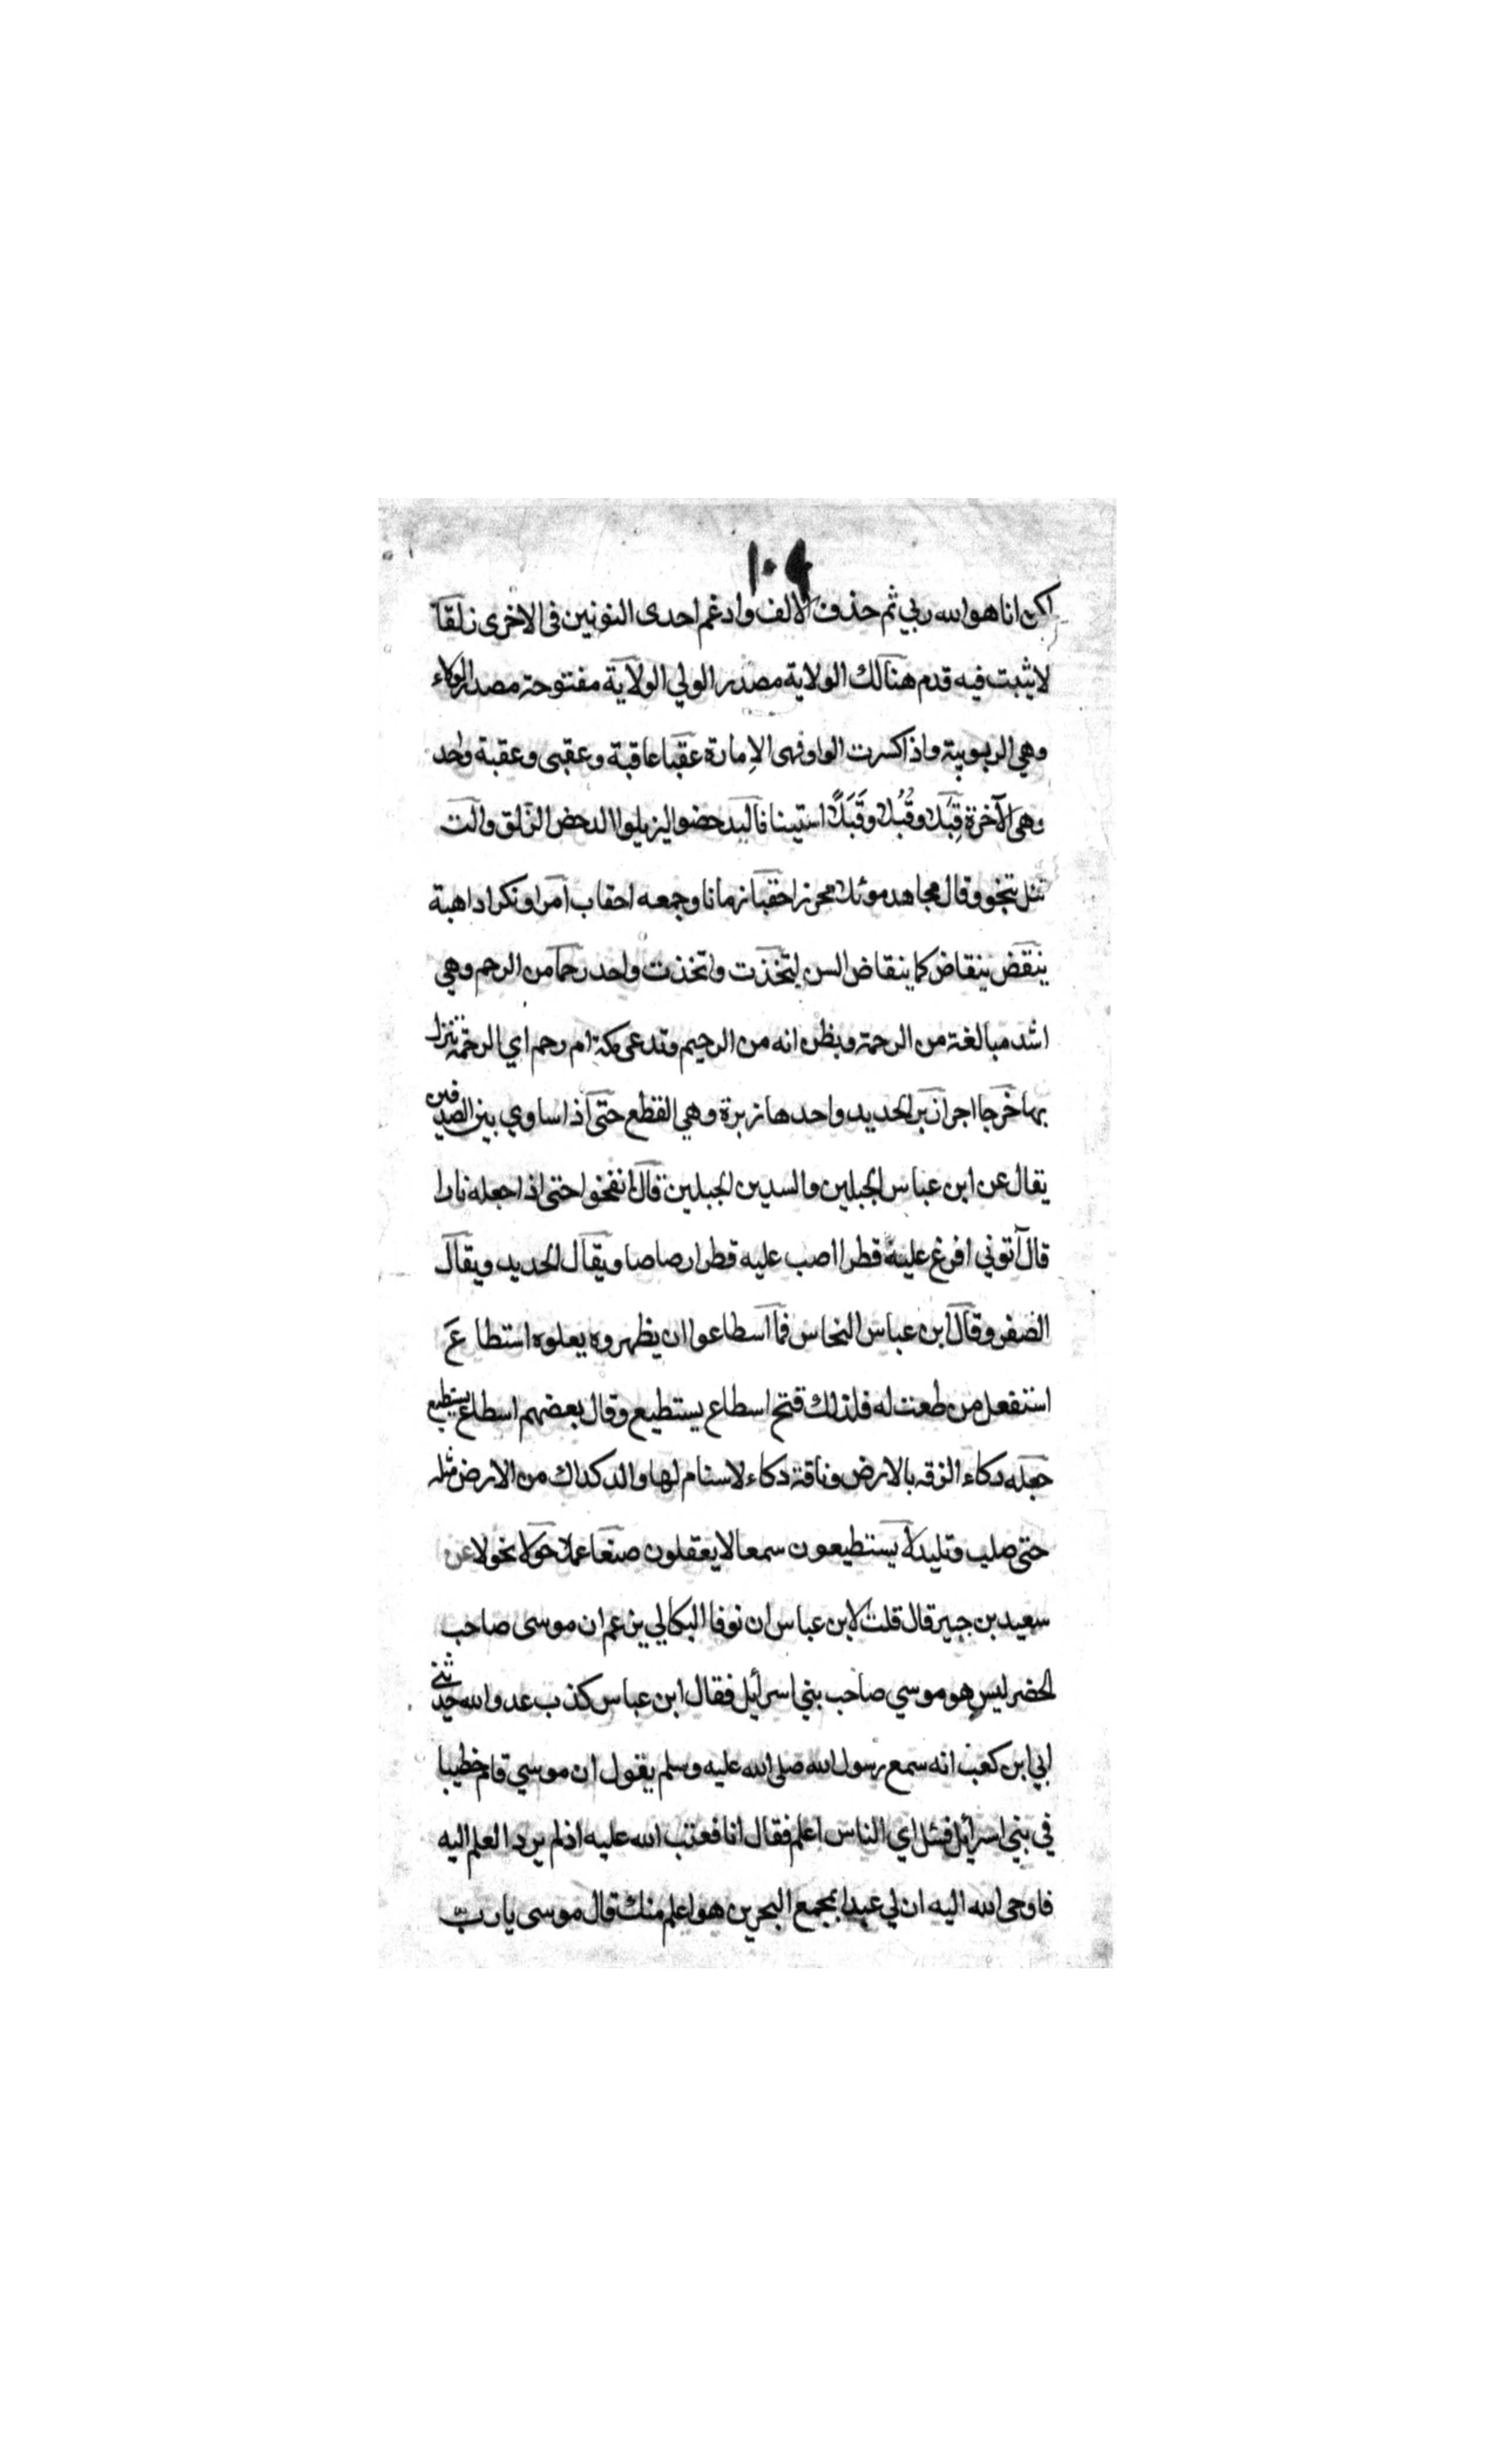 ١٠٩
لكن انا هو الله ربي ثم حذف الالف وادغم احدى النونين في الاخرى زلقا
لا يثبت فيه قدم هنالك الولاية مصدر الولي الولاية مفتوحة مصدر الولاء
وهي الربوبية واذا كسرت الواو فهى الإمارة عقبا عاقبة وعقبى وعقبة واحد
وهى الآخرة قِبَلا وقُبُلا وقَبَلًا استينافا ليدحضوا ليزيلوا الدحض الزلق والت
تئل تنجو وقال مجاهد موئلا محرزا حقبا زمانا وجمعه احقاب امرا ونكرا داهية
ينقض ينقاض كما ينقاض السن لتخذت واتخذت واحد رحما من الرحم وهي
اشد مبالغة من الرحمة ويظن انه من الرحيم وتدعى مكة ام رحم اي الرحمة تنزل
بها خرجا اجرا زبر الحديد واحدها زبرة وهي القطع حتى اذا ساوي بين الصدفين
يقال عن ابن عباس الجبلين والسدين الجبلين قال انفخوا حتى اذا جعله نارا
قال آتوني افرغ عليه قطرا اصب عليه قطرا رصاصا ويقال الحديد ويقال
الصفر وقال ابن عباس النحاس فما اسطاعوا ان يظهروه يعلوه استطاع
استفعل من طعت له فلذلك فتح اسطاع يستطيع وقال بعضهم اسطاع يستطيع
جعله دكاء الزقه بالارض وناقة دكاء لا سنام لها والدكداك من الارض مثله
حتى صلب وتلبد لا يستطيعون سمعا لا يعقلون صنعا عملا حولا تحولا عن
سعيد بن جبير قال قلت لابن عباس ان نوفا البكالي يزعم ان موسى صاحب
الخضر ليس هو موسي صاحب بني اسرائيل فقال ابن عباس كذب عدو الله حدثني
ابي ابن كعب انه سمع رسول الله صلى الله عليه وسلم يقول ان موسي قام خطيبا
في بني اسرائيل فسئل اي الناس اعلم فقال انا فعتب الله عليه اذ لم يرد العلم اليه
فاوحى الله اليه ان لي عبدا بمجمع البحرين هو اعلم منك قال موسى يا رب